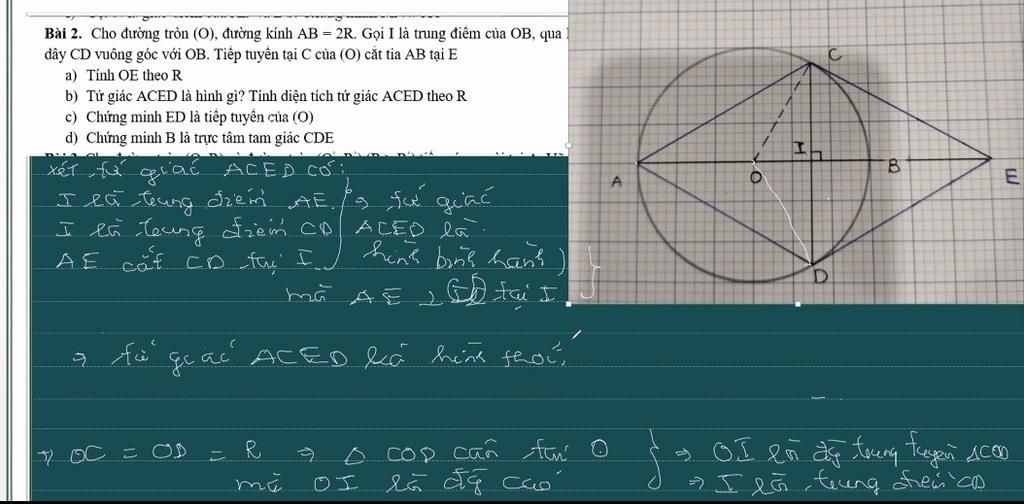 Bài 2. Cho đường tròn (O), đường kính AB = 2R. Gọi I là trung điểm của OB, qua I
dây CD vuông góc với OB. Tiếp tuyến tại C của (O) cắt tia AB tại E
a) Tính OE theo R
b) Tứ giác ACED là hình gì? Tính diện tích tứ giác ACED theo R
c) Chứng minh ED là tiếp tuyến của (O)
d) Chứng minh B là trực tâm tam giác CDE
C
I
A
O
B
E
D
xét tứ giác ACED có:
I là trung điểm AE. ⇒ tứ giác
I là trung điểm CD ACED là
AE cắt CD tại I. hình bình hành)
mà AE ⊥ CD tại I
⇒ tứ giác ACED là hình thoi.
+) OC = OD = R ⇒ Δ COD cân tại O ⇒ OI là đg trung tuyến ΔCOD
mà OI là đg cao ⇒ I là trung điểm CD